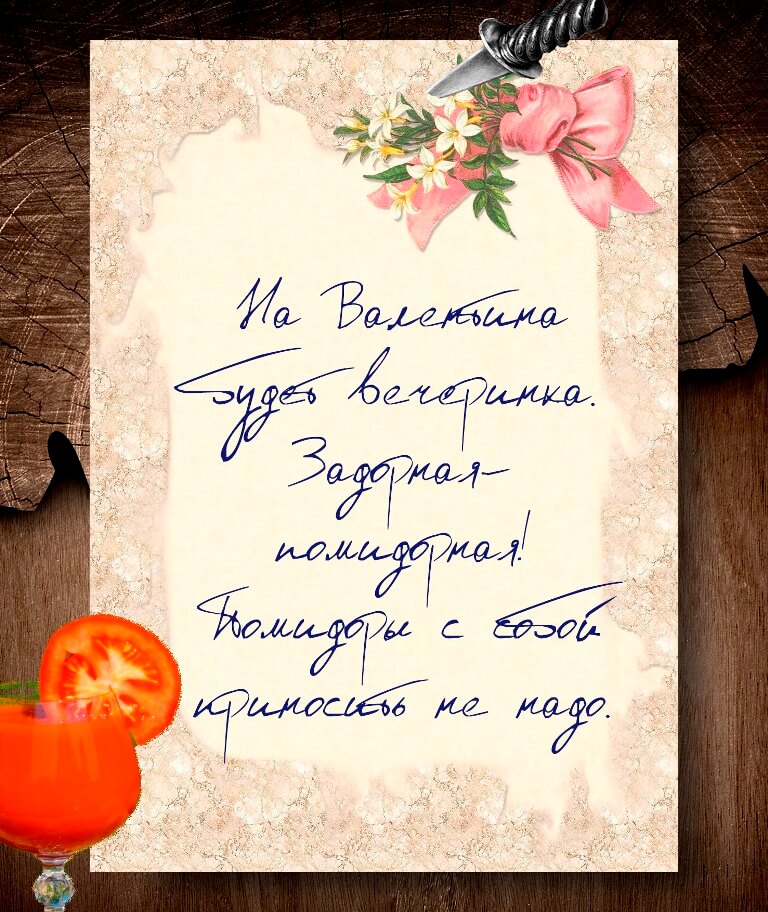 На Валентина
будет вечеринка.
Задорная-
помидорная!
Помидоры с собой
приносить не надо.